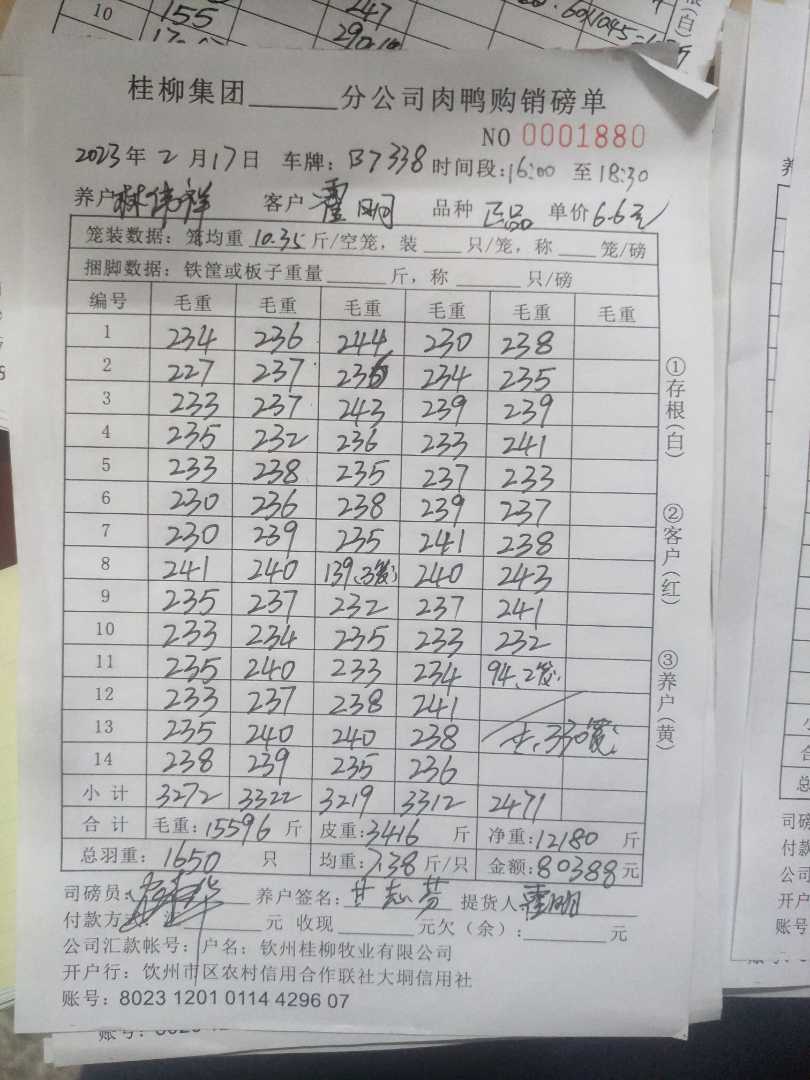 10 155 247
桂柳集团______分公司肉鸭购销磅单
NO 0001880
2023年 2月17日 车牌：B7338 时间段：16:00 至 18:30
养户 林伟祥 客户 霍明 品种 正品 单价 6.6元
笼装数据：笼均重 10.35 斤/空笼，装____只/笼，称____笼/磅
捆脚数据：铁筐或板子重量______斤，称______只/磅
编号 毛重 毛重 毛重 毛重 毛重 毛重
1 234 236 244 230 238
2 227 237 236 234 235
3 233 237 243 239 239
4 235 232 236 233 241
5 233 238 235 237 233
6 230 236 238 239 237
7 230 239 235 241 238
8 241 240 139.3 240 243
9 235 237 232 237 241
10 233 234 235 233 232
11 235 240 233 234 94.2
12 233 237 238 241
13 235 240 240 238 330
14 238 239 235 236
小计 3272 3322 3219 3312 2471
合计 毛重：15596 斤 皮重：3416 斤 净重：12180 斤
总羽重：1650 只 均重：7.38 斤/只 金额：80388 元
司磅员： 养户签名： 提货人 霍明
付款方式： ______元 收现______元欠（余）：______元
公司汇款帐号：户名：钦州桂柳牧业有限公司
开户行：钦州市区农村信用合作联社大垌信用社
账号：8023 1201 0114 4296 07
①存根（白） ②客户（红） ③养户（黄）